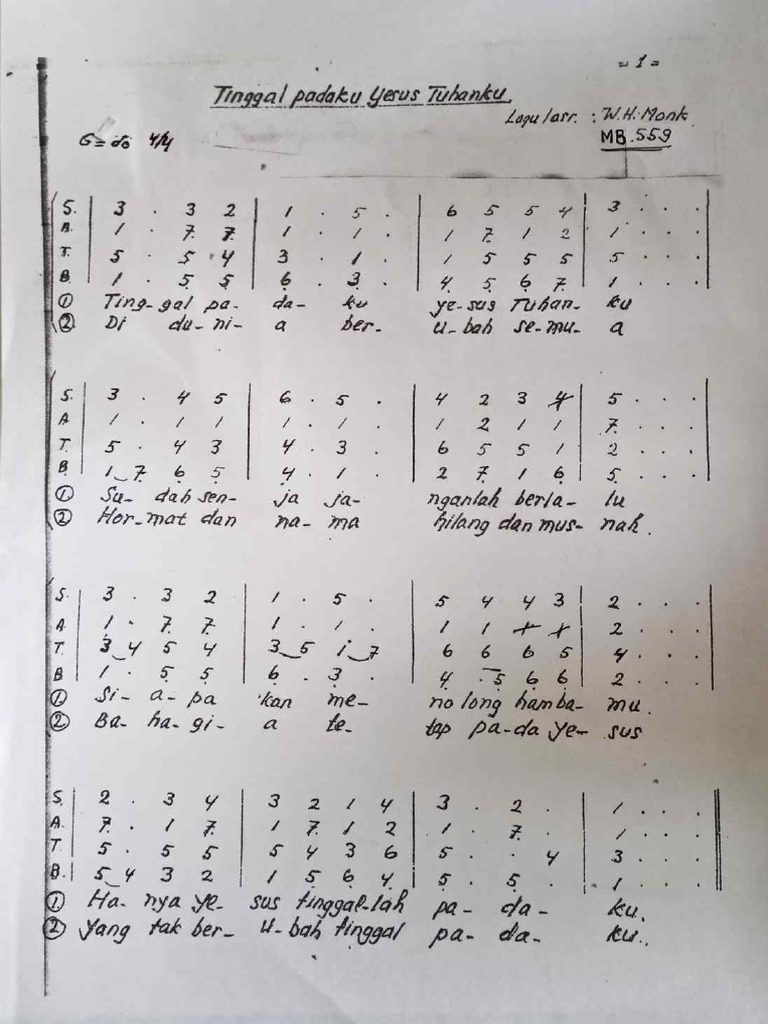 = 1 =
Tinggal padaku Yesus Tuhanku.
Lagu/asr. : W.H. Monk
G = do 4/4 MB. 559
S. | 3 . 3 2 | 1 . 5 . | 6 5 5 4 | 3 . . . |
A. | 1 . 7̣ 7̣ | 1 . 1 . | 1 7̣ 1 2 | 1 . . . |
T. | 5 . 5 4 | 3 . 1 . | 1 5 5 5 | 5 . . . |
B. | 1 . 5̣ 5̣ | 6̣ . 3̣ . | 4̣ 5̣ 6̣ 7̣ | 1 . . . |
① Ting-gal pa- da- ku ye-sus Tuhan- ku
② Di du-ni- a ber- u-bah se-mu- a
S. | 3 . 4 5 | 6 . 5 . | 4 2 3 4̸ | 5 . . . |
A | 1 . 1 1 | 1 . 1 . | 1 2 1 1 | 7̣ . . . |
T. | 5 . 4 3 | 4 . 3 . | 6 5 5 1 | 2 . . . |
B. | 1‿7̣ 6̣ 5̣ | 4̣ . 1 . | 2 7̣ 1 6̣ | 5̣ . . . |
① Su- dah sen- ja ja- nganlah berla- lu
② Hor-mat dan na- ma hilang dan mus- nah.
S. | 3 . 3 2 | 1 . 5 . | 5 4 4 3 | 2 . . . |
A | 1 . 7̣ 7̣ | 1 . 1 . | 1 1 1̸ 1̸ | 2 . . . |
T. | 3‿4 5 4 | 3‿5 i‿7 | 6 6 6 5 | 4 . . . |
B | 1 . 5̣ 5̣ | 6̣ . 3̣ . | 4̣ .5̣ 6̣ 6̣ | 2 . . . |
① Si- a- pa kan me- no long hamba- mu.
② Ba- ha-gi- a te- tap pa-da ye- sus
S. | 2 . 3 4 | 3 2 1 4 | 3 . 2 . | 1 . . . ||
A. | 7̣ . 1 7̣ | 1 7̣ 1 2 | 1 . 7̣ . | 1 . . . ||
T | 5 . 5 5 | 5 4 3 6 | 5 . . 4 | 3 . . . ||
B. | 5‿4 3 2 | 1 5̣ 6̣ 4̣ | 5̣ . 5̣ . | 1 . . . ||
① Ha- nya ye- sus tinggal-lah pa- da- ku.
② Yang tak ber- u-bah tinggal pa- da- ku..